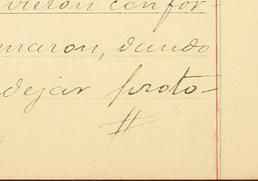 vieron confor-
maron, dando
dejar proto-